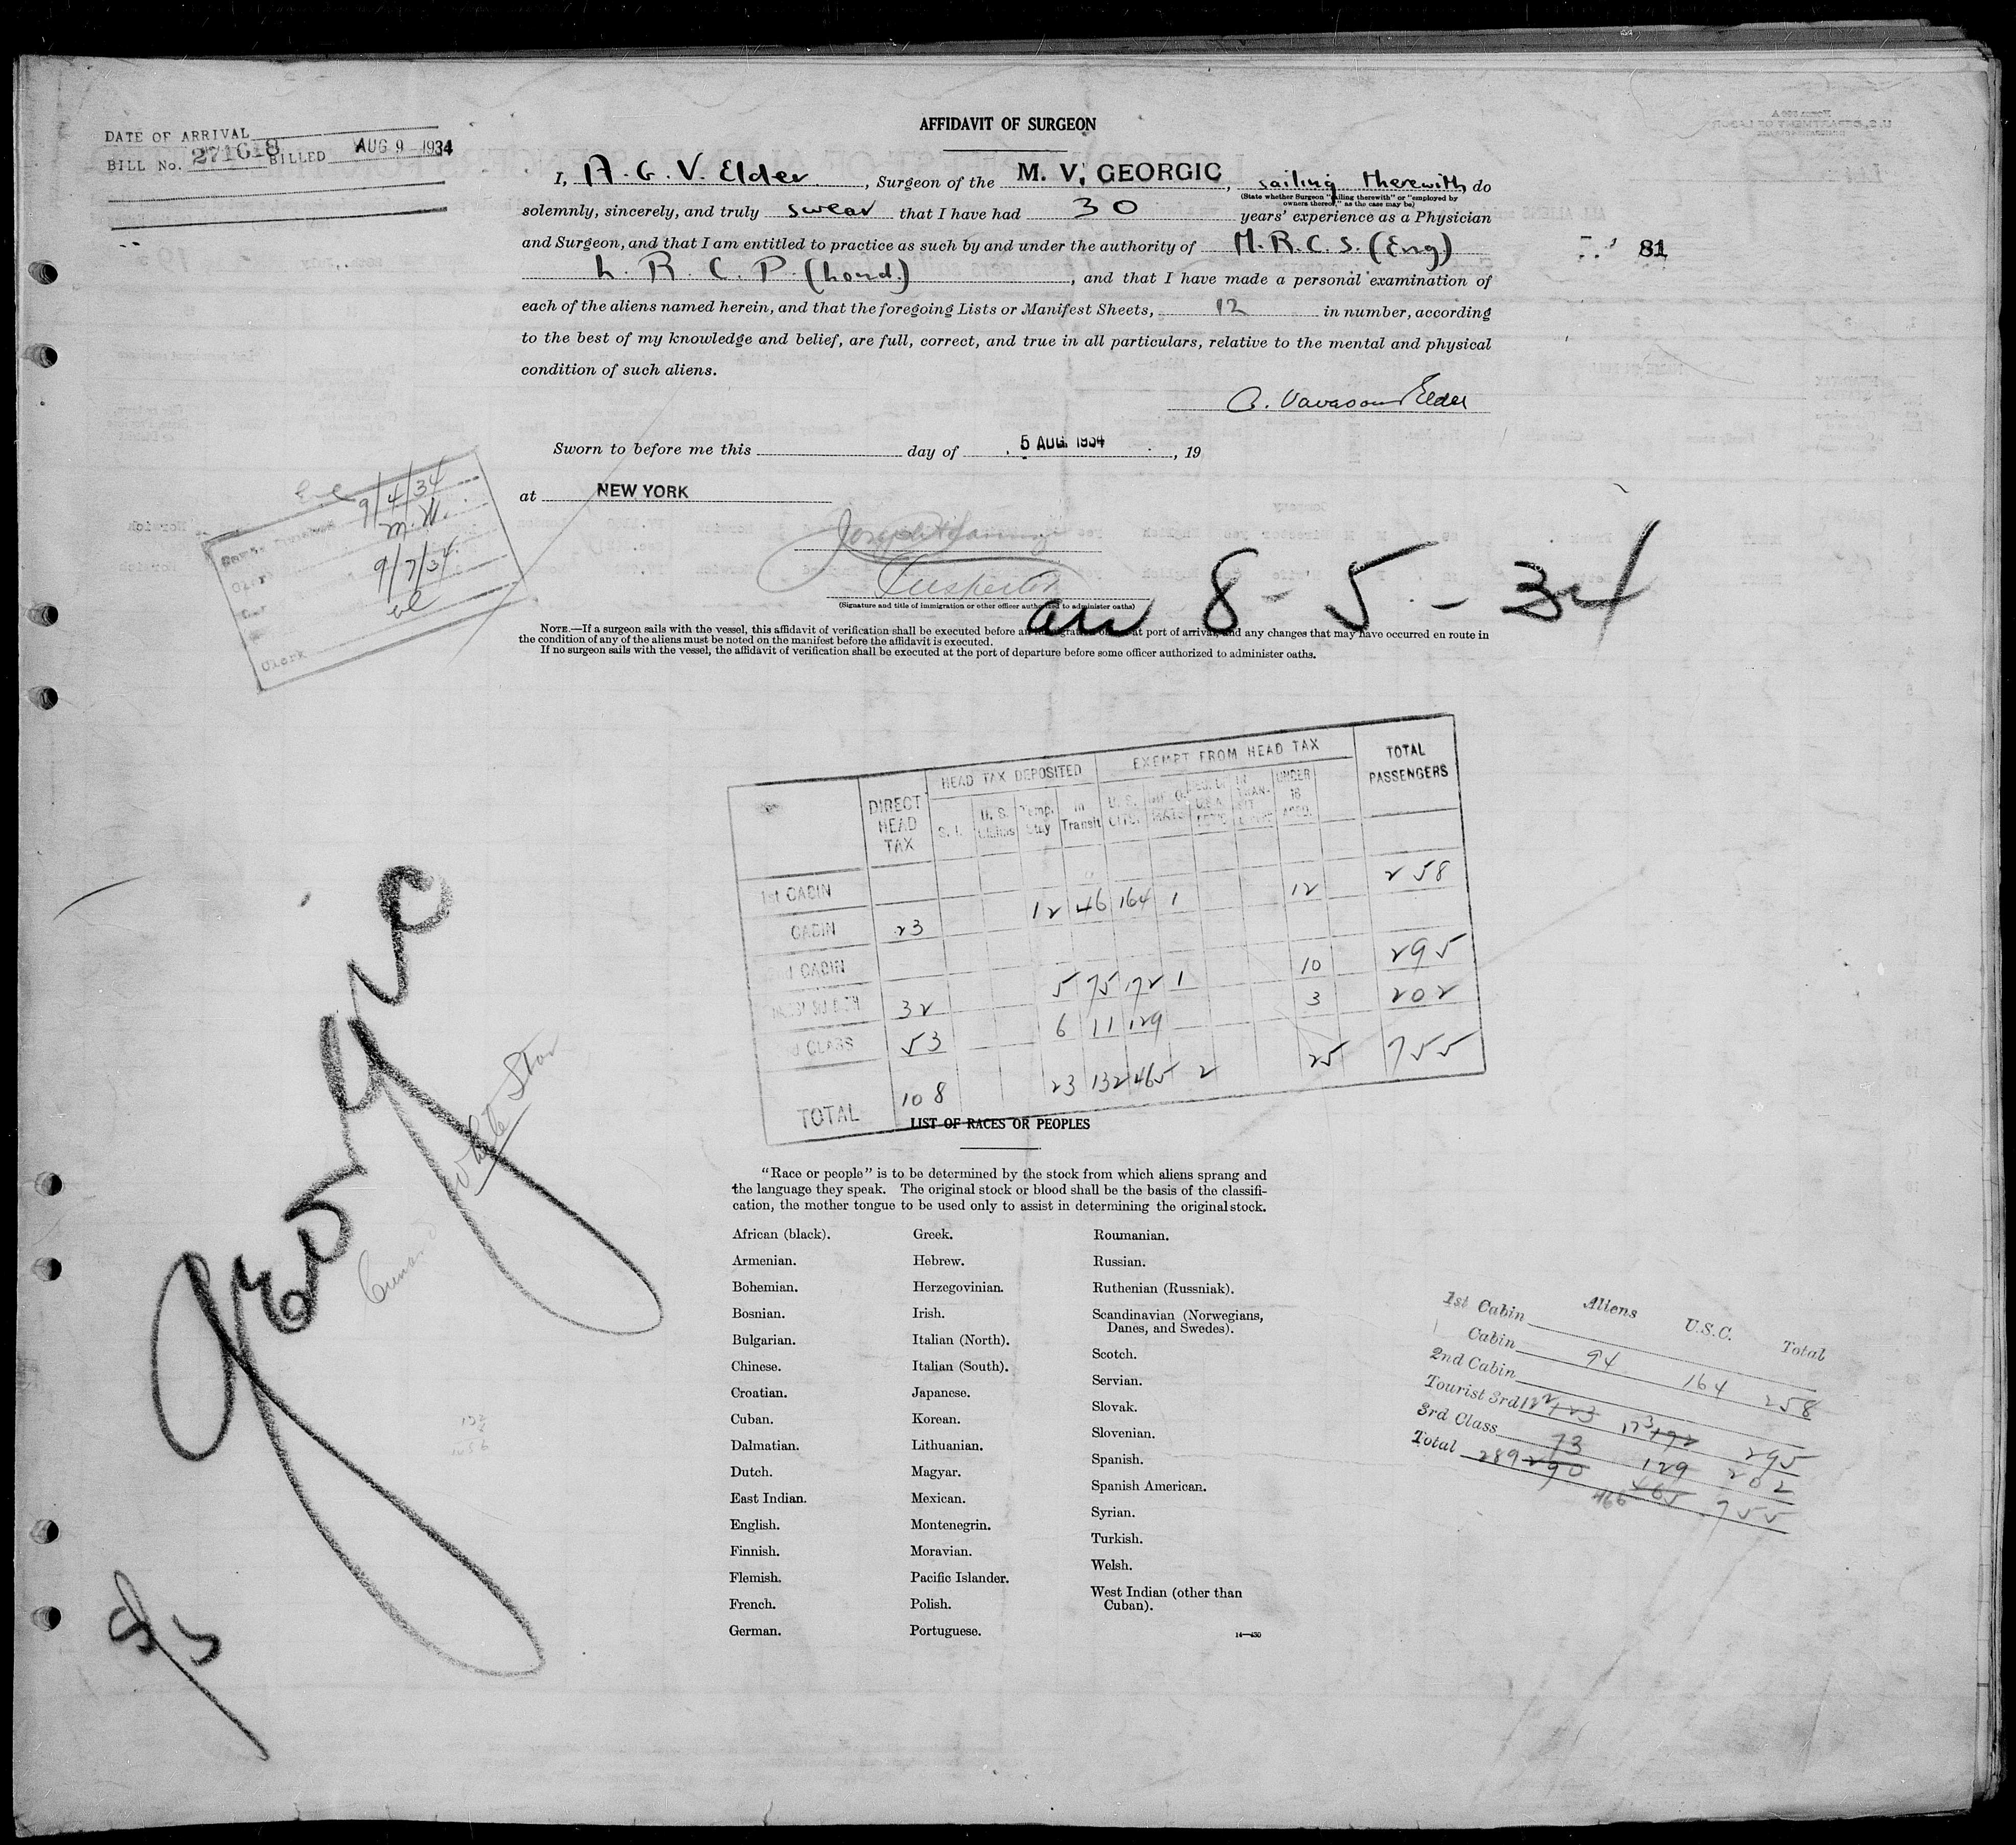 DATE OF ARRIVAL
BILL No. 27161-8 BILLED AUG 9 - 1934
AFFIDAVIT OF SURGEON
I, A. G. V. Elder, Surgeon of the M. V. GEORGIC, sailing therewith, do
(State whether Surgeon "sailing therewith" or "employed by
owners thereof," as the case may be)
solemnly, sincerely, and truly swear that I have had 30 years' experience as a Physician
and Surgeon, and that I am entitled to practice as such by and under the authority of M.R.C.S. (Eng)
L. R. C. P. (Lond.), and that I have made a personal examination of
each of the aliens named herein, and that the foregoing Lists or Manifest Sheets, 12 in number, according
to the best of my knowledge and belief, are full, correct, and true in all particulars, relative to the mental and physical
condition of such aliens.
81
A. Vavasour Elder
Sworn to before me this day of 5 AUG. 1934, 19
at NEW YORK
Inspector
(Signature and title of immigration or other officer authorized to administer oaths)
arr 8-5-34
NOTE.—If a surgeon sails with the vessel, this affidavit of verification shall be executed before an immigration officer at port of arrival, and any changes that may have occurred en route in
the condition of any of the aliens must be noted on the manifest before the affidavit is executed.
If no surgeon sails with the vessel, the affidavit of verification shall be executed at the port of departure before some officer authorized to administer oaths.
9/4/34
M.W.
Clerk
9/7/34
Clerk
DIRECT HEAD TAX
HEAD TAX DEPOSITED
EXEMPT FROM HEAD TAX
TOTAL PASSENGERS
S. I. U. S. Claims Temp. Stay In Transit U. S. CITZ. IN TRANSIT UNDER 16 ACCO.
1st CABIN
CABIN 23 12 46 164 1 12 258
2nd CABIN
32 5 75 172 1 10 295
3d CLASS 53 6 11 129 3 202
TOTAL 108 23 132 465 2 25 755
Georgic
Cunard White Star
8/5
LIST OF RACES OR PEOPLES
"Race or people" is to be determined by the stock from which aliens sprang and
the language they speak. The original stock or blood shall be the basis of the classifi-
cation, the mother tongue to be used only to assist in determining the original stock.
African (black).
Armenian.
Bohemian.
Bosnian.
Bulgarian.
Chinese.
Croatian.
Cuban.
Dalmatian.
Dutch.
East Indian.
English.
Finnish.
Flemish.
French.
German.
Greek.
Hebrew.
Herzegovinian.
Irish.
Italian (North).
Italian (South).
Japanese.
Korean.
Lithuanian.
Magyar.
Mexican.
Montenegrin.
Moravian.
Pacific Islander.
Polish.
Portuguese.
Roumanian.
Russian.
Ruthenian (Russniak).
Scandinavian (Norwegians,
Danes, and Swedes).
Scotch.
Servian.
Slovak.
Slovenian.
Spanish.
Spanish American.
Syrian.
Turkish.
Welsh.
West Indian (other than
Cuban).
14—430
Aliens U.S.C. Total
1st Cabin
Cabin 94 164 258
2nd Cabin
Tourist 3rd 122 123 173 172 295
3rd Class 73 129 202
Total 289 290 466 465 755